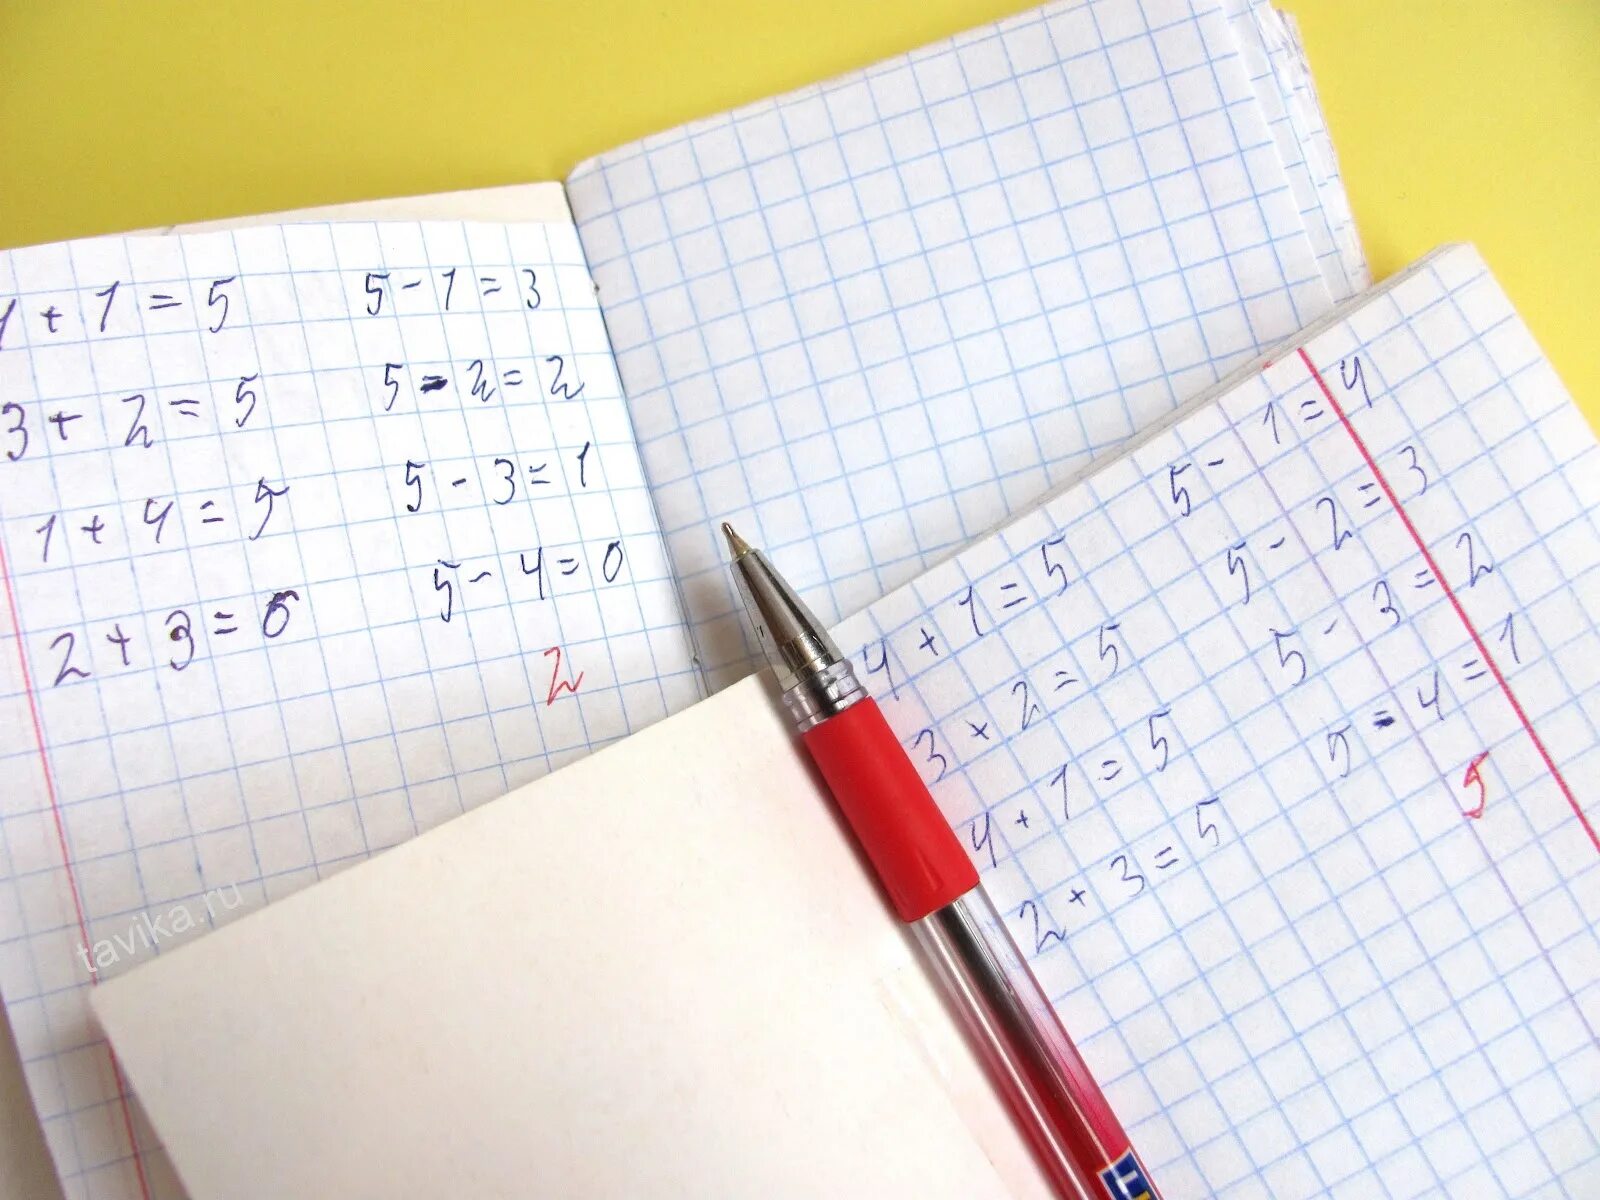 1 + 1 = 5
3 + 2 = 5
1 + 4 = 5
2 + 3 = 6
5 - 1 = 3
5 - 2 = 2
5 - 3 = 1
5 - 4 = 0
2
4 + 1 = 5
3 + 2 = 5
4 + 1 = 5
2 + 3 = 5
5 - 1 = 4
5 - 2 = 3
5 - 3 = 2
5 - 4 = 1
5
tavika.ru